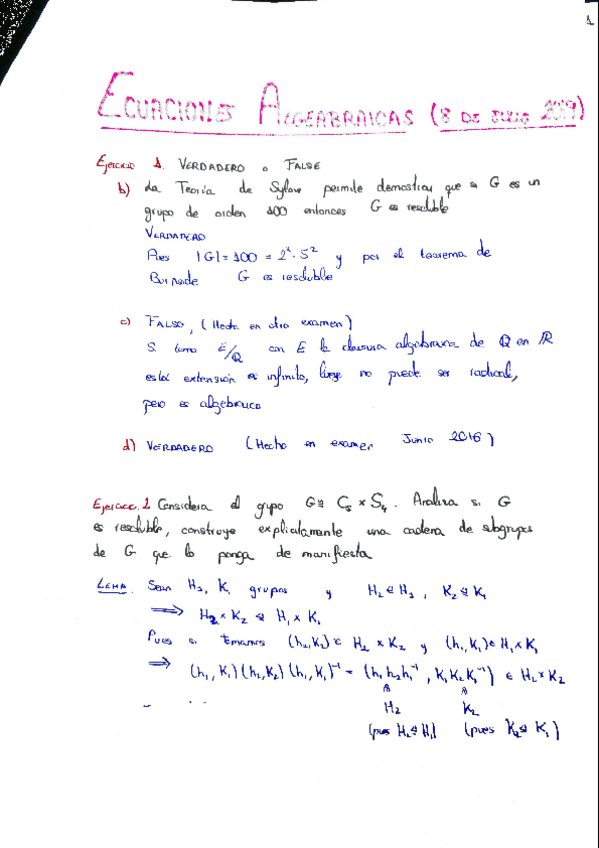 1
ECUACIONES ALGEBRAICAS (8 DE JUNIO 2019)
Ejercicio 1. VERDADERO o FALSE
b) La Teoría de Sylow permite demostrar que si G es un
grupo de orden 100 entonces G es resoluble
VERDADERO
Pues |G| = 100 = 2² · 5² y por el teorema de
Burnside G es resoluble
c) FALSO, (Hecho en otro examen)
Si tomo E/Q con E la clausura algebraica de Q en R
esta extensión es infinita, luego no puede ser radical,
pero es algebraica
d) VERDADERO (Hecho en examen Junio 2016)
Ejercicio 2. Considera el grupo G ≅ C₅ × S₄. Analiza si G
es resoluble, construye explícitamente una cadena de subgrupos
de G que lo ponga de manifiesto
LEMA. Sean H₁, K₁ grupos y H₂ ⊴ H₁, K₂ ⊴ K₁
⟹ H₂ × K₂ ⊴ H₁ × K₁
Pues si tomamos (h₂, k₂) ∈ H₂ × K₂ y (h₁, k₁) ∈ H₁ × K₁
⟹ (h₁, k₁)(h₂, k₂)(h₁, k₁)⁻¹ = (h₁h₂h₁⁻¹, k₁k₂k₁⁻¹) ∈ H₂ × K₂
H₂ K₂
(pues H₂ ⊴ H₁) (pues K₂ ⊴ K₁)